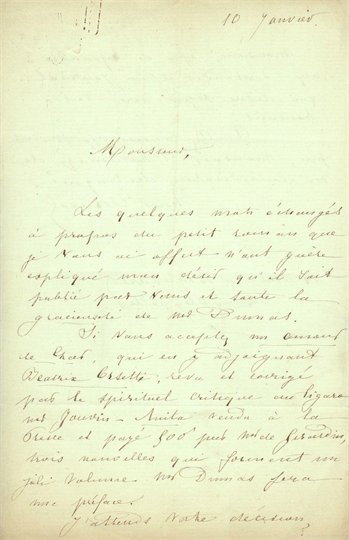 10 Janvier.
Monsieur,
Les quelques mots échangés
à propos du petit roman que
je vous ai offert n'ont guère
expliqué mon désir qu'il soit
publié par vous et toute la
gracieuseté de Mr Dumas.
Si vous acceptez un amour
de Chat, qui en y adjoignant
Béatrix Orsetti, revu et corrigé
par le spirituel critique du figaro
Mr Jouvin - Anita vendu à la
Presse et payé 500 par Mr de Girardin,
trois nouvelles qui forment un
joli volume Mr Dumas fera
une préface.
J'attends votre décision,